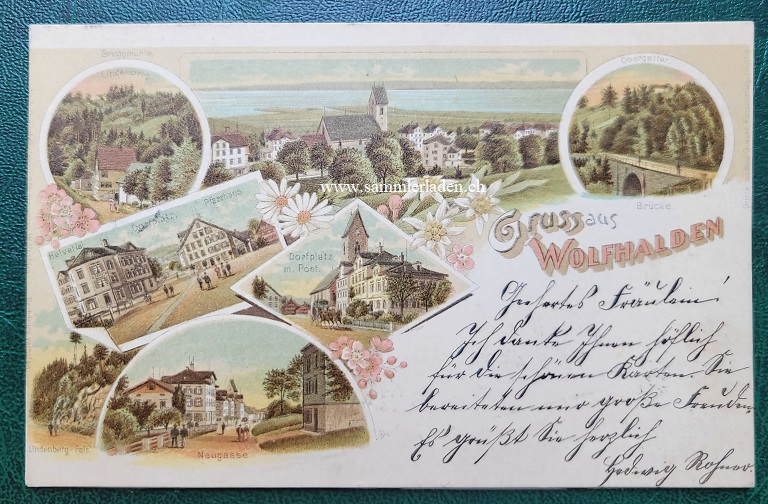 Lindenberg
Obergeller
www.sammlerladen.ch
Brücke.
Helvetia
Pfarrhaus
Dorfplatz
m. Post.
Gruss aus
WOLFHALDEN
Lindenberg-Fels
Neugasse
Geehrtes Fräulein!
Ich danke Ihnen höflich
für die schönen Karten. Sie
bereiteten mir große Freuden.
Es grüßt Sie herzlich
Hedwig Rohner.